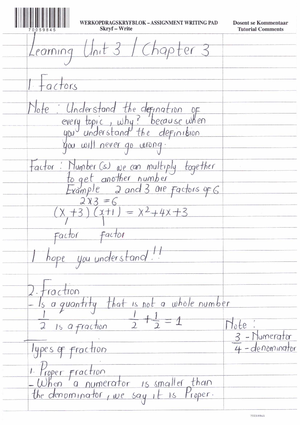 WERKOPDRAGSKRYFBLOK – ASSIGNMENT WRITING PAD
Skryf – Write
Dosent se Kommentaar
Tutorial Comments
Learning Unit 3 / Chapter 3
1 Factors
Note : Understand the defination of
every topic, why? because when
you understand the definition
you will never go wrong.
Factor : Number(s) we can multiply together
to get another number
Example 2 and 3 are factors of 6
2x3 = 6
(x+3)(x+1) = x²+4x+3
factor factor
I hope you understand!!
2. Fraction
- Is a quantity that is not a whole number
1/2 is a fraction 1/2 + 1/2 = 1
Note :
3 - Numerator
4 - denominator
Types of fraction
1. Proper fraction
- When a numerator is smaller than
the denominator, we say it is Proper.